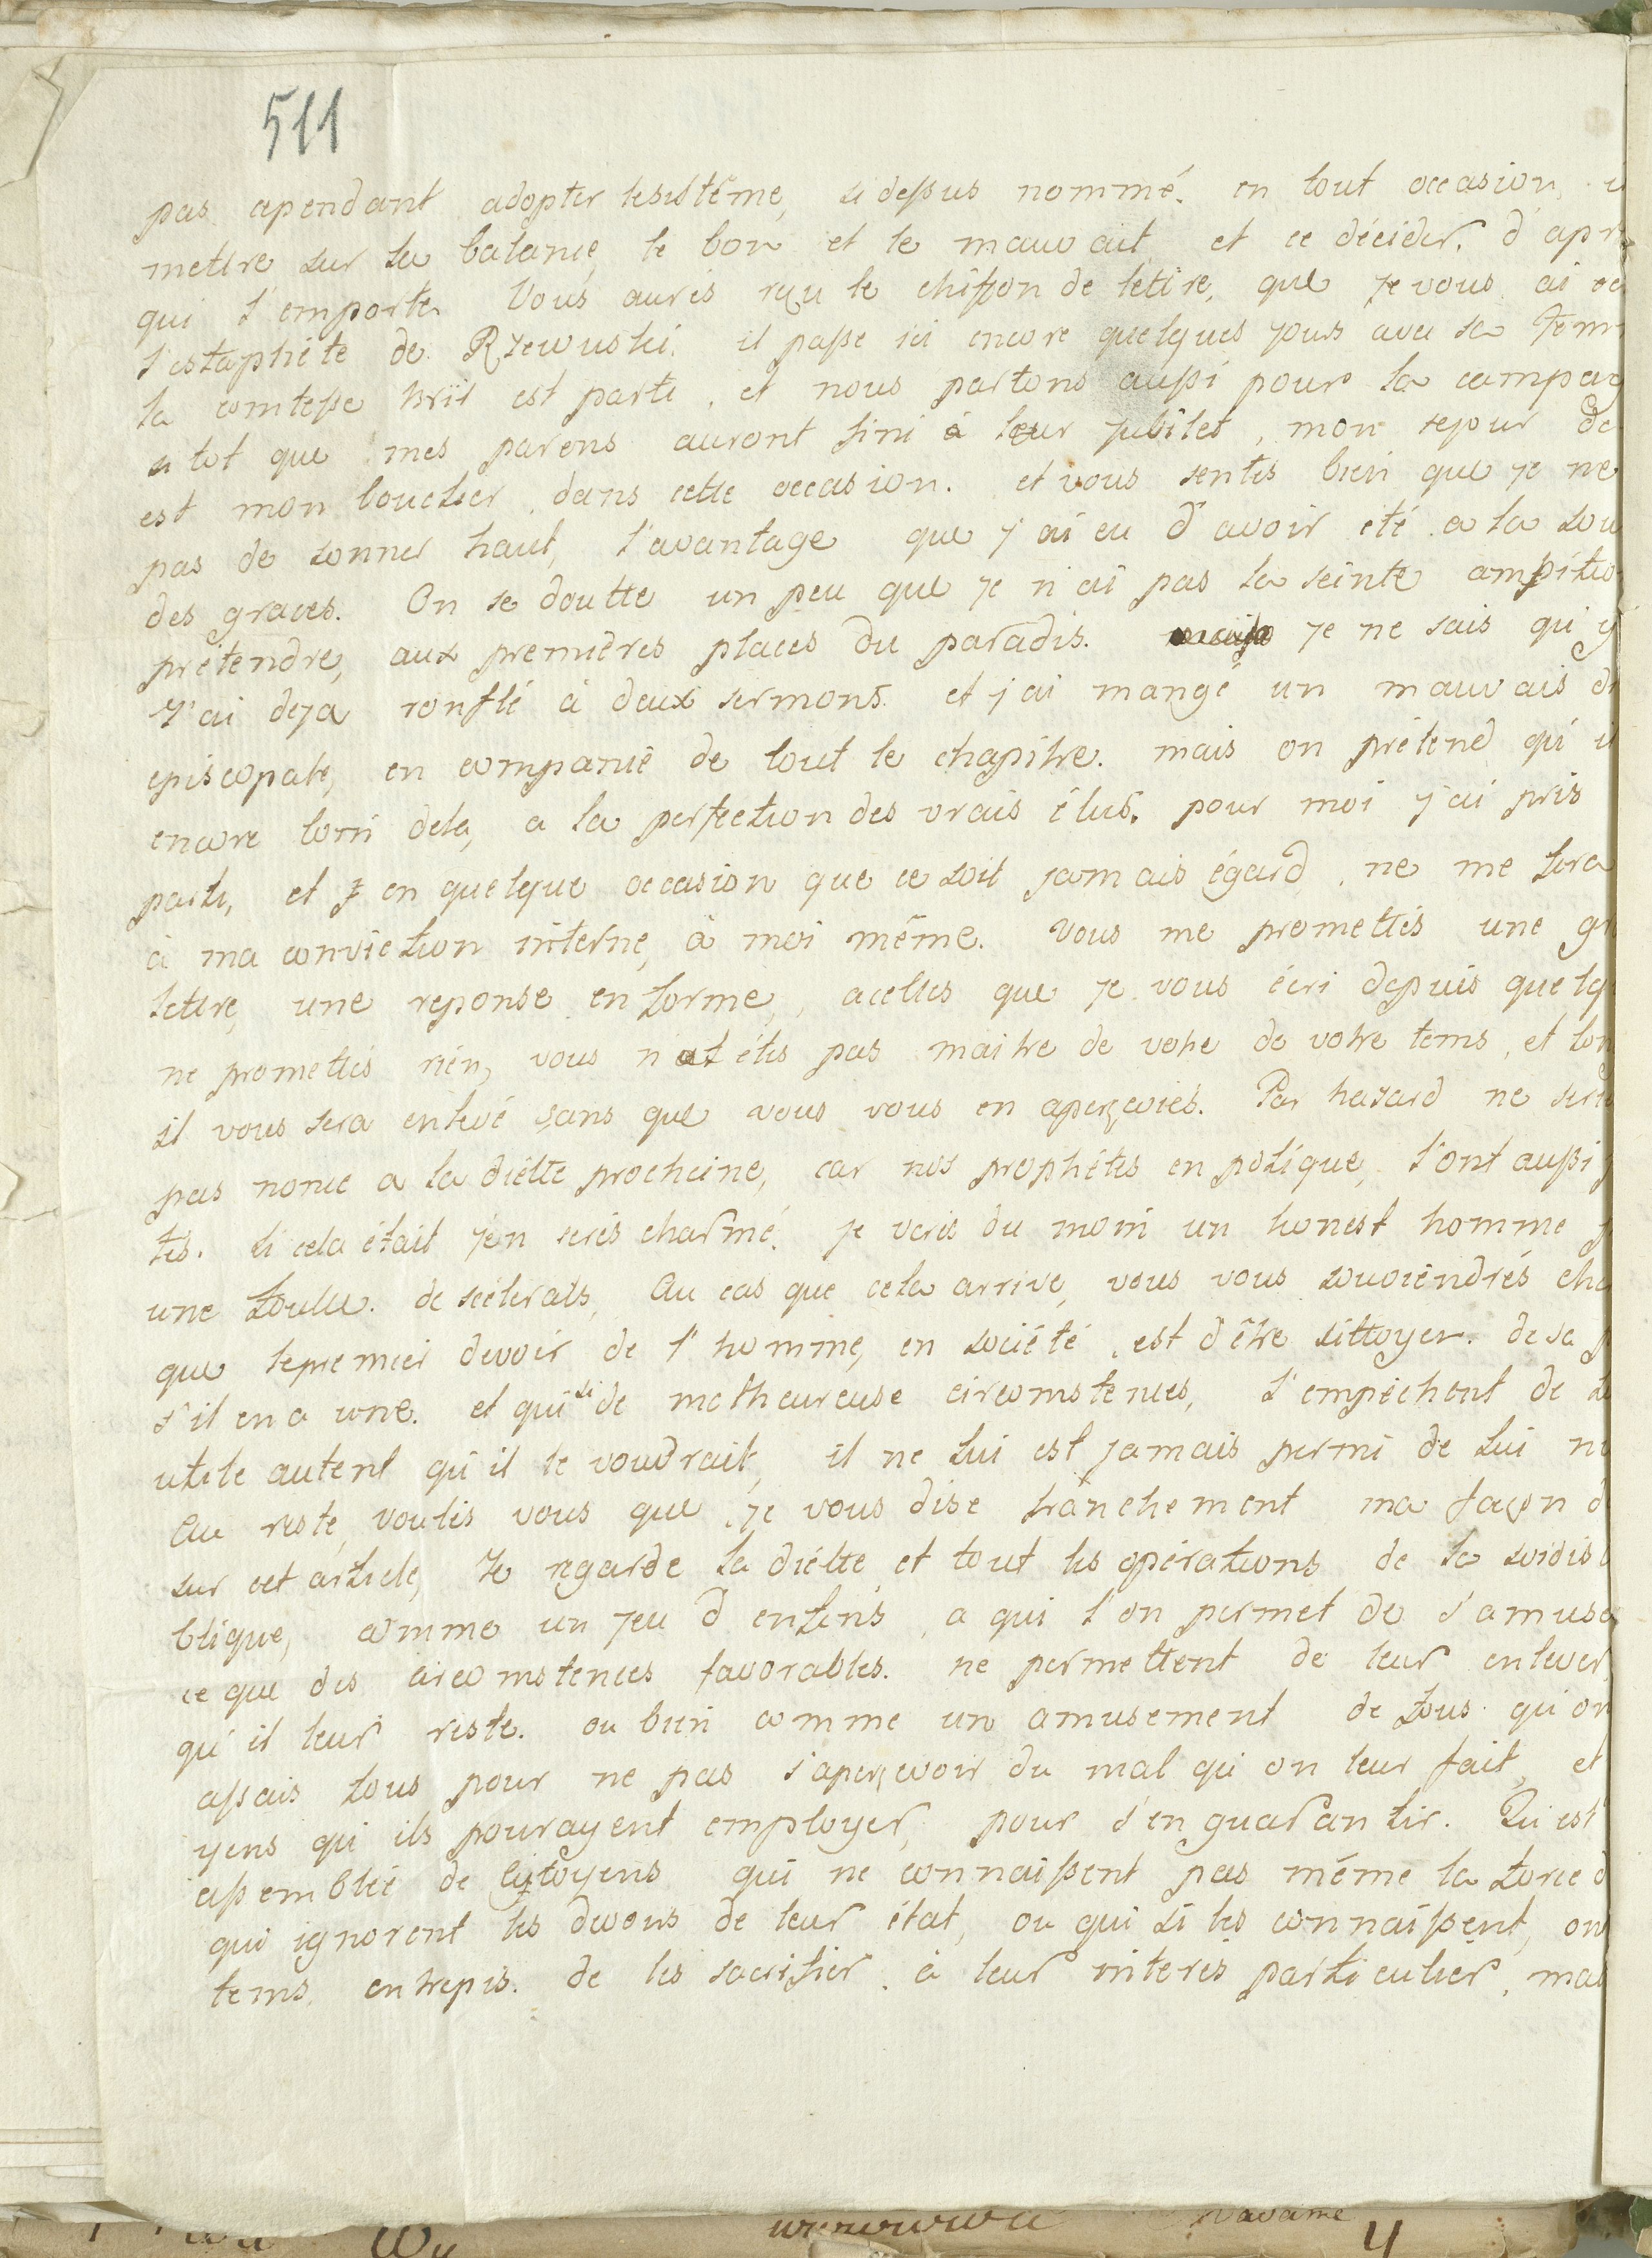 511
pas cependant adopter le sistême, si dessus nommé. en tout occasion, i
mettre sur la balance, le bon et le mauvait et ce décider, d'apr
qui l'emporte. Vous aurés reçu le chiffon de lettre, que je vous ai
l'estaphéte de Rzewuski. il passe ici encore quelques jours avec sa femm
la comtesse Brül est parti, et nous partons aussi pour la campag
si tot que mes parens auront fini à leur jubilet, mon sejour de
est mon bouclier, dans cette occasion. et vous sentés bien que je ne
pas de sonner haut, l'avantage que j'ai eu d'avoir été a la sou
des graces. On se doutte un peu que je n'ai pas la seinte ambitio
prétendre, aux premières places du paradis. je ne sais qu'y
J'ai deja ronflé à deux sermons. et j'ai mangé un mauvais di
episcopale, en companie de tout le chapitre. mais on prétend qu'i
encore loin dela, a la perfection des vrais élus. pour moi j'ai pris
parti, et en quelque occasion que ce soit jamais égard, ne me fera
à ma conviction interne, à moi même. Vous me promettés une gr
lettre, une reponse en forme, acelles que je vous écri depuis quelq
ne promettés rien, vous n'etés pas maitre de votre de votre tems, et
il vous sera enlevé sans que vous vous en aperçeviés. Par hazard ne seri
pas nonce a la diétte procheine, car nos prophétes en politique, l'ont aussi
tés. si cela était j'en serés charmé. je verés du moin un honest homme
une foulle de scélérats, Au cas que cela arrive, vous vous souviendrés
que le premier devoir de l'homme, en société, est d'être sittoyen. de sa p
s'il en a une. et qui si de malheureuse circomstences, l'empêchent de
utile autent qu'il le voudrait, il ne lui est jamais permi de lui
Au reste, voulés vous que je vous dise franchement ma façon d
sur cet article, Je regarde la diétte, et tout les opérations de la soidis
blique, comme un jeu d'enfens, a qui l'on permet de s'amuse
ce que des circomstences favorables. ne permettent de leur enlever,
qu'il leur reste. ou bien comme un amusement de fous qu'on
assais fous pour ne pas s'aperçevoir du mal qu'on leur fait, et
yens qu'ils pourayent employer, pour s'en guarantir. Qu'est
assemblée de Cytoyens qui ne connaissent pas même la force d
qui ignorent les devoirs de leur état, ou qui si les connaissent, on
tems, entrepis. de les sacrifier, à leur interés particulier, mal